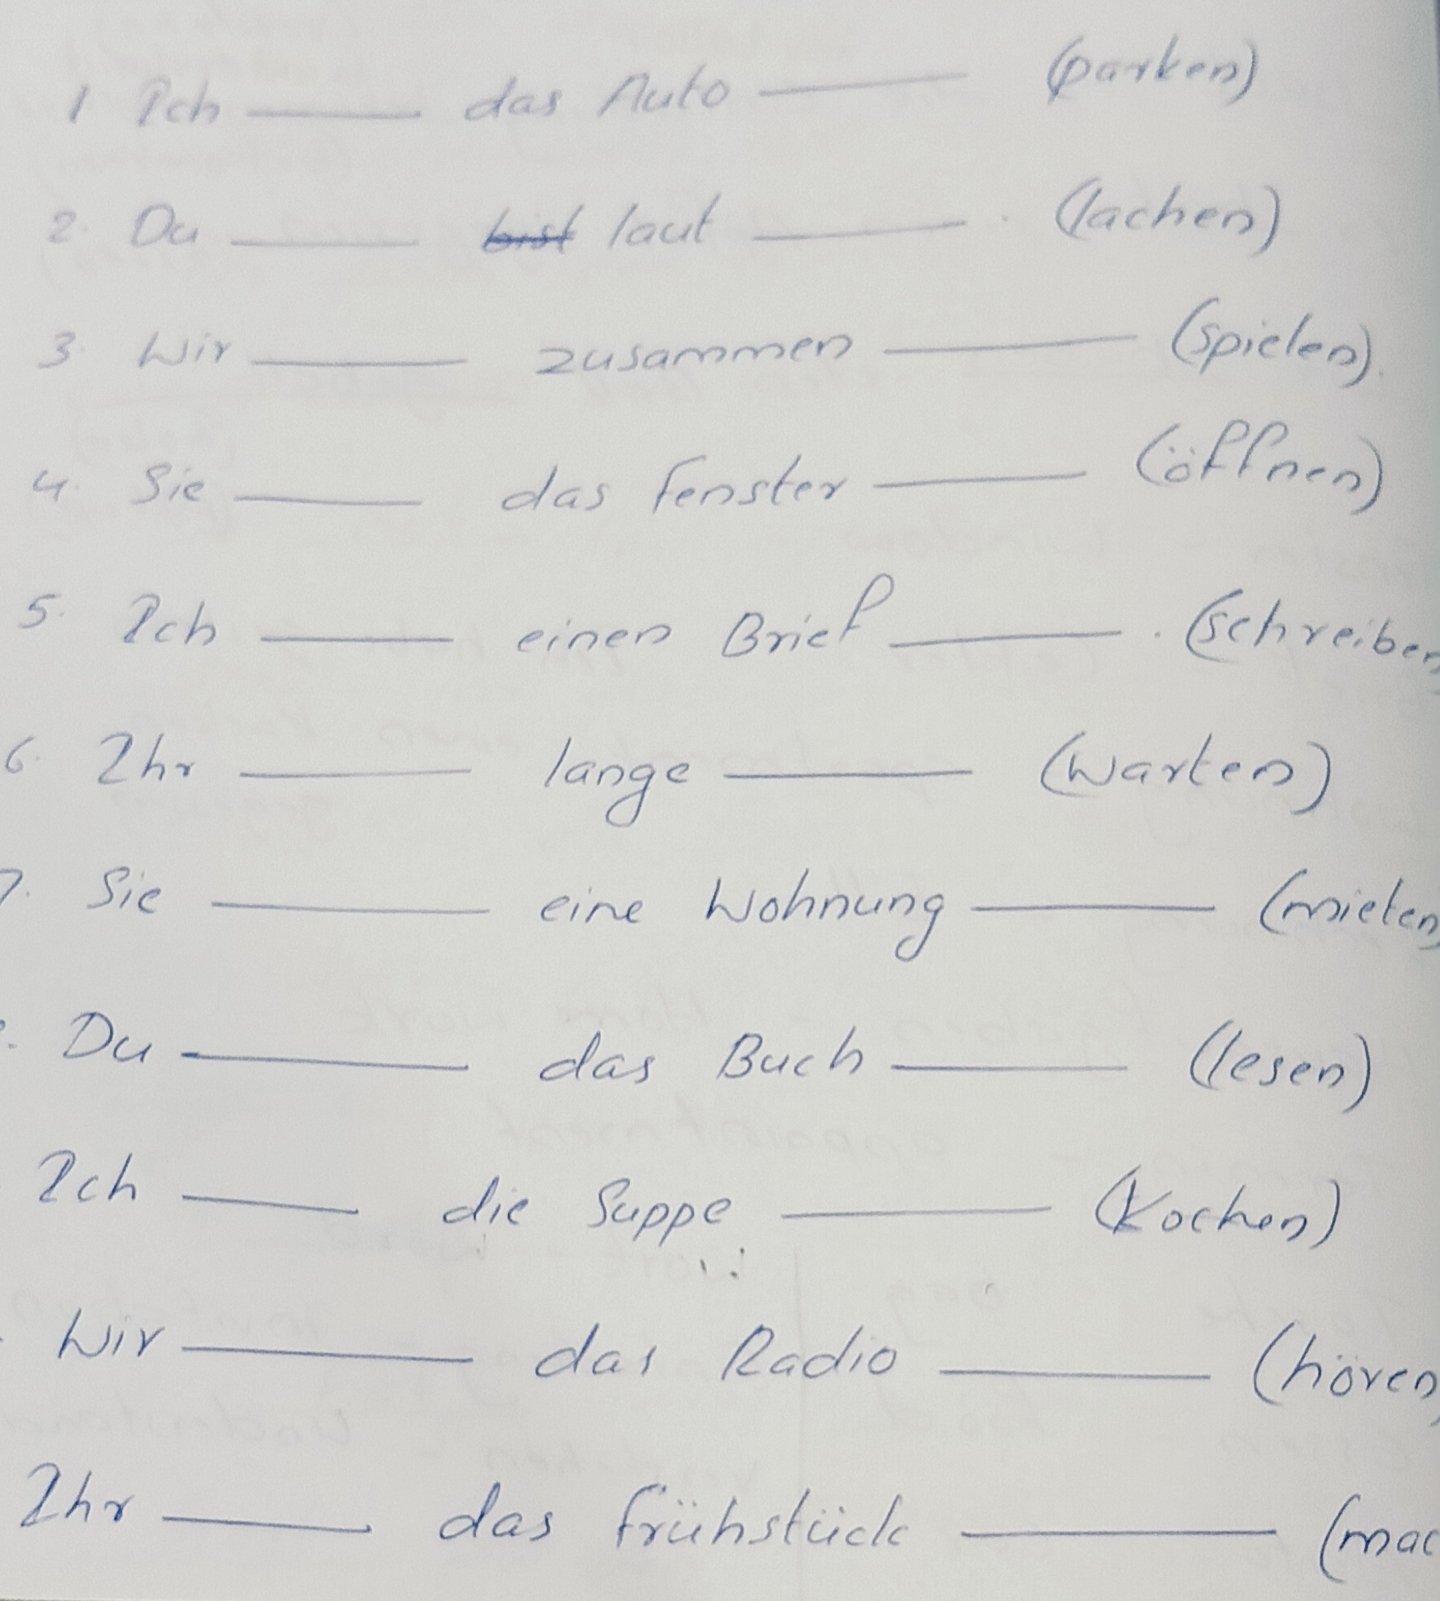 1 Ich ______ das Auto ______ (parken)
2. Du ______ bist laut ______. (lachen)
3. Wir ______ zusammen ______ (spielen).
4. Sie ______ das Fenster ______ (öffnen)
5. Ich ______ einen Brief ______. (schreiben
6. Ihr ______ lange ______ (warten)
7. Sie ______ eine Wohnung ______ (mieten)
. Du ______ das Buch ______ (lesen)
Ich ______ die Suppe ______ (kochen)
Wir ______ das Radio ______ (hören)
Ihr ______ das Frühstück ______ (mac